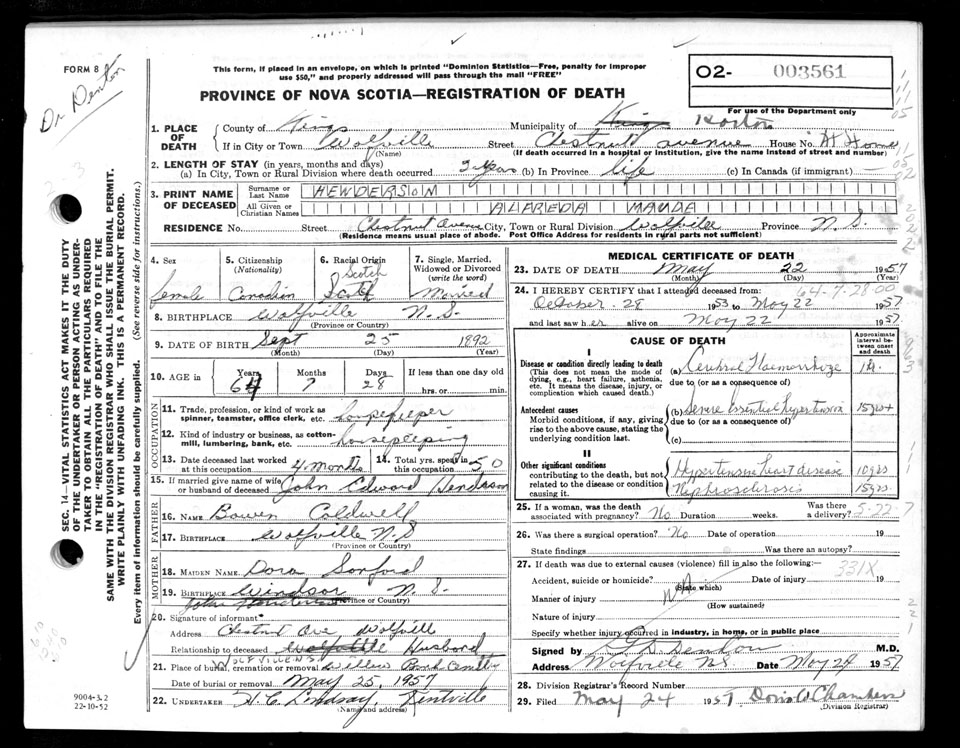 FORM 8
Dr Denton
This form, if placed in an envelope, on which is printed "Dominion Statistics—Free, penalty for improper
use $50," and properly addressed will pass through the mail "FREE"
O2- 003561
For use of the Department only
PROVINCE OF NOVA SCOTIA—REGISTRATION OF DEATH
1. PLACE OF DEATH
County of Kings Municipality of Kings Horton
If in City or Town Wolfville (Name) Street Chestnut avenue House No. At Home
(If death occurred in a hospital or institution, give the name instead of street and number)
2. LENGTH OF STAY (in years, months and days)
(a) In City, Town or Rural Division where death occurred yrs (b) In Province life (c) In Canada (if immigrant)
3. PRINT NAME OF DECEASED
Surname or Last Name HENDERSON
All Given or Christian Names ALFREDA MAUDE
RESIDENCE No. Street Chestnut Aven City, Town or Rural Division Wolfville Province N.S.
(Residence means usual place of abode. Post Office Address for residents in rural parts not sufficient)
4. Sex female
5. Citizenship (Nationality) Canadian
6. Racial Origin Scotch
7. Single, Married, Widowed or Divorced (write the word) Married
8. BIRTHPLACE Wolfville N.S.
(Province or Country)
9. DATE OF BIRTH Sept 25 1892
(Month) (Day) (Year)
10. AGE in Years 64 Months 7 Days 28 If less than one day hrs. or min.
OCCUPATION
11. Trade, profession, or kind of work as spinner, teamster, office clerk, etc. housekeeper
12. Kind of industry or business, as cotton-mill, lumbering, bank, etc. housekeeping
13. Date deceased last worked at this occupation 4 months
14. Total yrs. spent in this occupation 50
15. If married give name of wife or husband of deceased John Edward Henderson
FATHER
16. NAME Bowen Coldwell
17. BIRTHPLACE Wolfville N.S
(Province or Country)
MOTHER
18. MAIDEN NAME Dora Sanford
19. BIRTHPLACE Windsor N.S.
(Province or Country)
John Henderson
20. Signature of informant
Address Chestnut Ave Wolfvill
Relationship to deceased Wolfville Husband
WOLFVILLE N.S.
21. Place of burial, cremation or removal Willow Bank Cemtby
Date of burial or removal May 25, 1957
22. UNDERTAKER H. C. Lindsay, Kentville
(Name and address)
MEDICAL CERTIFICATE OF DEATH
23. DATE OF DEATH May 22 1957
(Month) (Day) (Year)
24. I HEREBY CERTIFY that I attended deceased from:
October 28 1953 to May 22 1957
and last saw her alive on May 22 1957
CAUSE OF DEATH
Approximate interval between onset and death
I
Disease or condition directly leading to death
(This does not mean the mode of dying, e.g., heart failure, asthenia, etc. It means the disease, injury, or complication which caused death.)
(a) Cerebral Haemorrhage
due to (or as a consequence of)
Antecedent causes
Morbid conditions, if any, giving rise to the above cause, stating the underlying condition last.
(b) Severe essential hypertension 15yrs+
due to (or as a consequence of)
(c)
II
Other significant conditions
contributing to the death, but not related to the disease or condition causing it.
Hypertensive heart disease 10yrs
Nephrosclerosis 15yrs.
25. If a woman, was the death associated with pregnancy? No Duration weeks. Was there a delivery?
5-22-7
26. Was there a surgical operation? No Date of operation 19
State findings Was there an autopsy?
27. If death was due to external causes (violence) fill in also the following:
331X
Accident, suicide or homicide? Date of injury 19
(State which)
Manner of injury
(How sustained)
Nature of injury
Specify whether injury occurred in industry, in home, or in public place
Signed by Denton M.D.
Address Wolfville NS Date May 24 1957
28. Division Registrar's Record Number
29. Filed May 24 1957 Doris W Chambers
(Division Registrar)
SEC. 14—VITAL STATISTICS ACT MAKES IT THE DUTY
OF THE UNDERTAKER OR PERSON ACTING AS UNDERTAKER TO OBTAIN ALL THE PARTICULARS REQUIRED
IN THE "REGISTRATION OF DEATH" AND TO FILE THE
SAME WITH THE DIVISION REGISTRAR WHO SHALL ISSUE THE BURIAL PERMIT.
WRITE PLAINLY WITH UNFADING INK. THIS IS A PERMANENT RECORD.
Every item of information should be carefully supplied. (See reverse side for instructions.)
9004-3.2
22-10-52